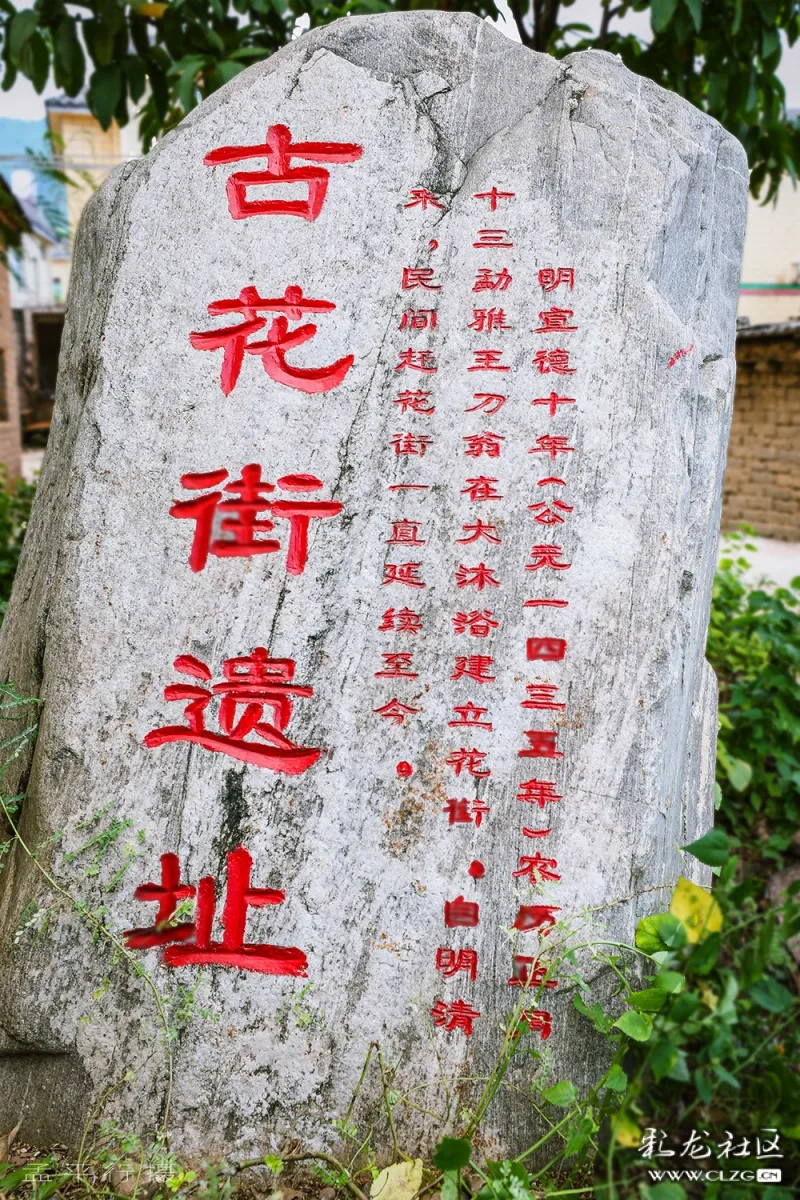 古花街遗址
明宣德十年（公元一四三五年）农历正月
十三勐雅王刀翁在大沐浴建立花街。自明清
来，民间赶花街一直延续至今。
孟来行摄
彩龙社区
www.CLZG.CN